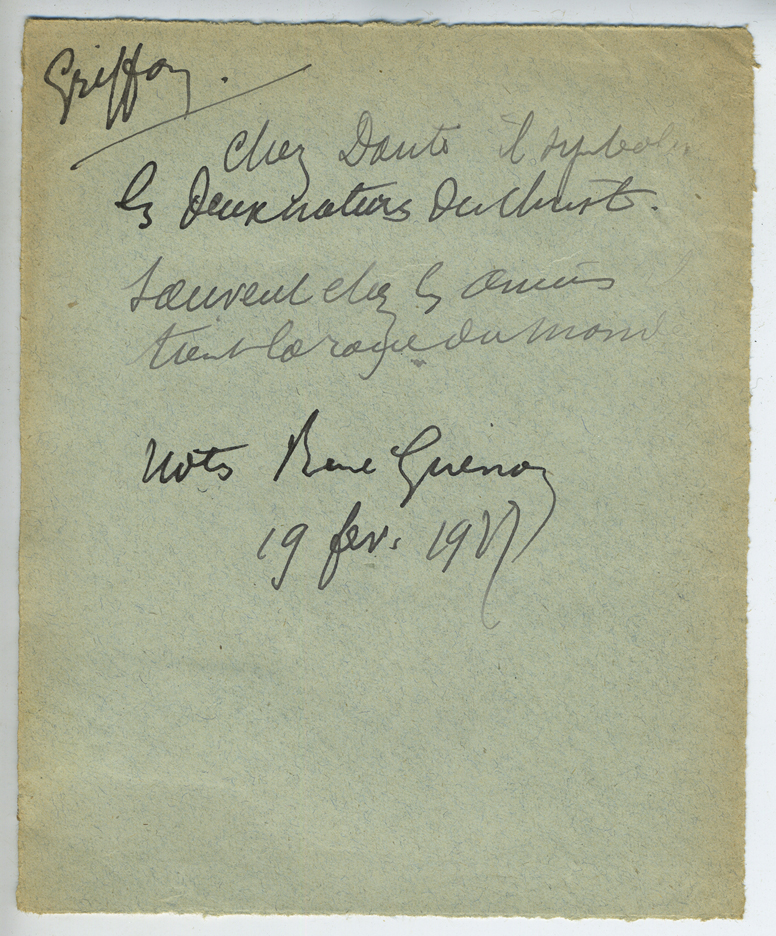 Griffon.
Chez Dante il symbolise
les deux natures du Christ.
Souvent chez les
tient la roue du Monde
Notes René Guénon
19 fev. 1927